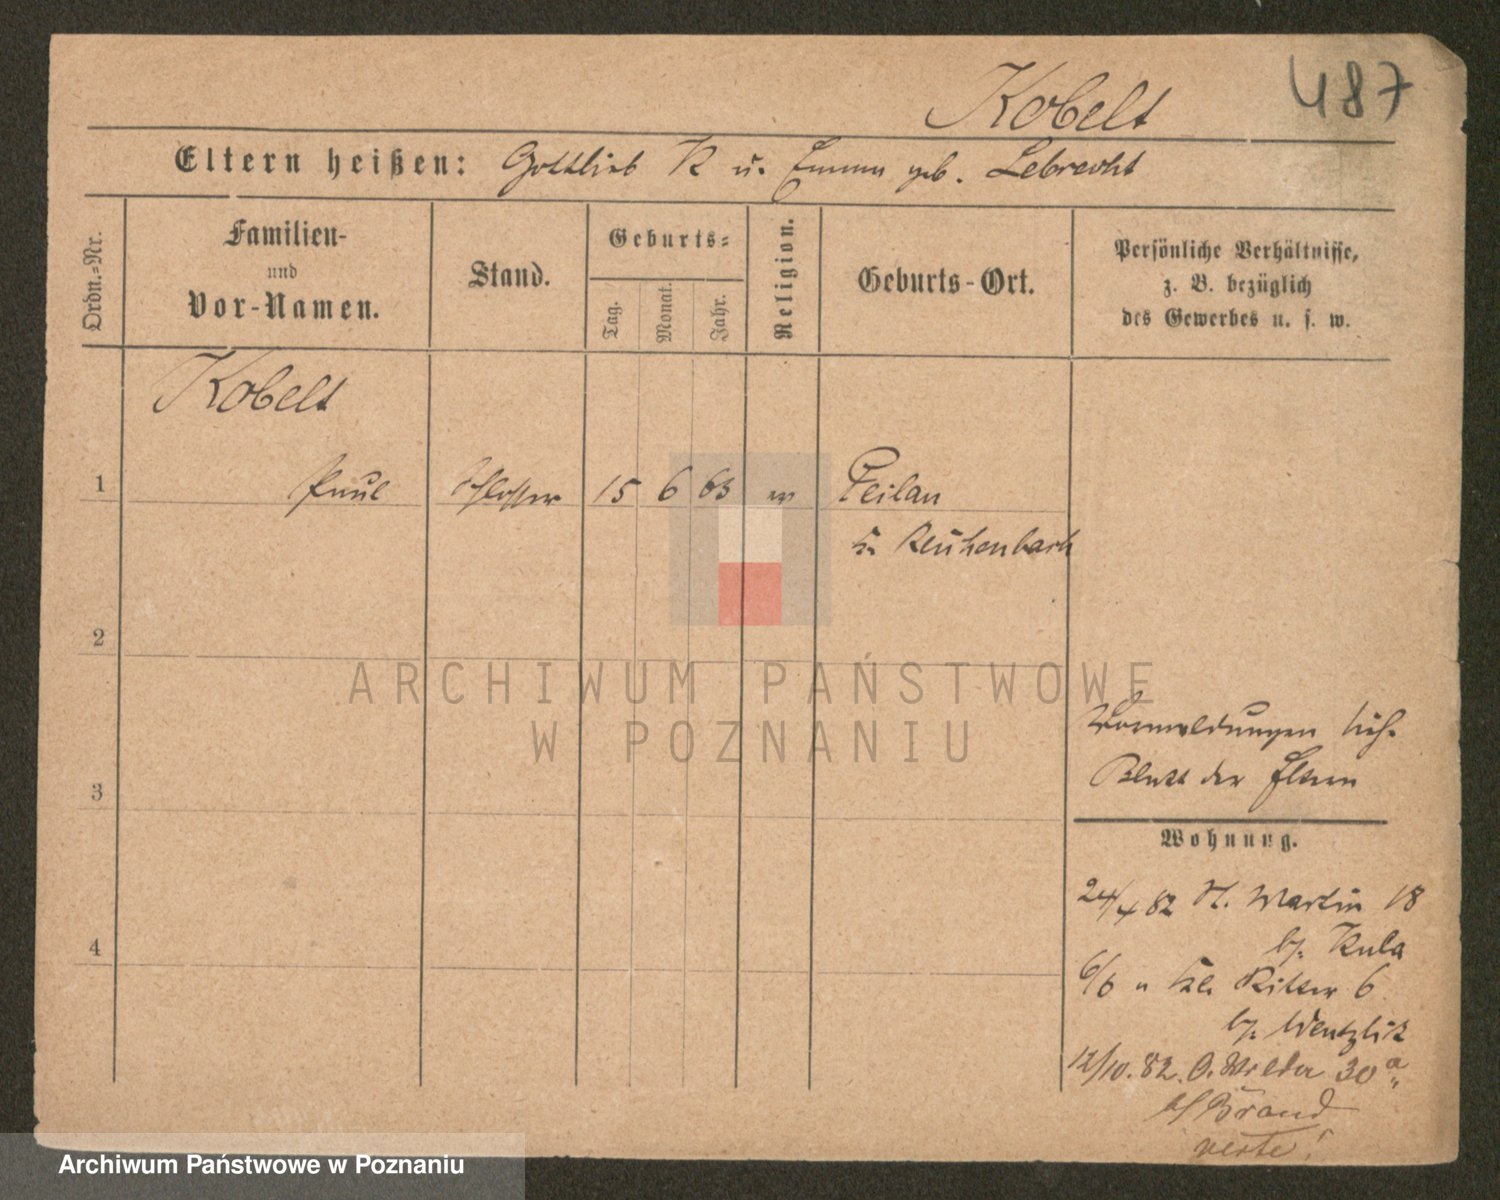 Kobelt
487
Eltern heißen: Gottlieb K u. Emma geb. Lebrecht
Ordn.=Nr.
Familien-
und
Vor-Namen.
Stand.
Geburts=
Tag.
Monat.
Jahr.
Religion.
Geburts-Ort.
Persönliche Verhältnisse,
z. B. bezüglich
des Gewerbes u. s. w.
Kobelt
1 Paul Schlosser 15 6 63 ev Peilau
Kr. Reichenbach
2
3
4
Vormeldungen sieh.
Blatt der Eltern
Wohnung.
24/4 82 St. Martin 18
bz. Kula
6/6 " Kl. Ritter 6
bz. Wentzlik
12/10. 82. O. Wilda 30a
b/ Brand
verte!
ARCHIWUM PAŃSTWOWE
W POZNANIU
Archiwum Państwowe w Poznaniu